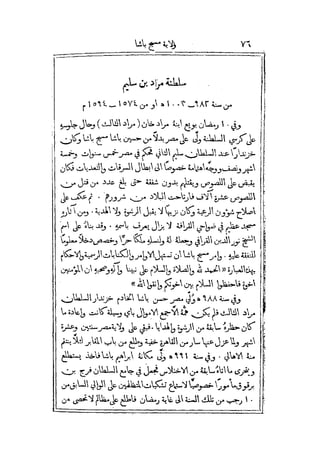 ٧٦ ولاية مسيح باشا
سلطنة مراد بن سليم
من سنة ٩٨٢ – ١٠٠٣ هـ او من ١٥٧٤ – ١٥٩٤ م
وفي ١٠ رمضان بويع ابنهُ مراد خان (مراد الثالث) وحال جلوسهِ
على كرسي السلطنة ولَّى على مصر بدلاً من حسين باشا مسيح باشا وكان
خزندارًا عند السلطان سليم الثاني فحكم في مصر خمس سنوات وخمسة
اشهر ونصف ووجه اهتمامهُ خصوصًا الى ابطال السرقات والتعديات فكان
يقبض على اللصوص ويقتلهم بدون شفقة حتى بلغ عدد من قتل من
اللصوص عشرة آلاف فارتاحت البلاد من شرورهم . ثم عكف على
اصلاح شؤون الرعية وكان نزيهًا لا يقبل الرشوة ولا الهدية . ومن آثاره
مسجد عظيم في ضواحي القرافة لا يزال يعرف باسمهِ . وقد بناهُ على اسم
الشيخ نور الدين القرافي وجعلهُ لهُ ولنسلهِ ملكًا حرًّا وخصص دخلاً معلومًا
للنفقة عليهِ . وامر مسيح باشا ان تستهل الاوامر والكتابات الرسمية والاحكام
بهذه العبارة «الحمد لله والصلاة والسلام على نبينا وآلهِ وصحبهِ ان المؤمنين
اخوة فاحفظوا السلام بين اخوتكم واتقوا الله»
وفي سنة ٩٨٨ هـ وُلِّي مصر حسن باشا الخادم خزندار السلطان
مراد الثالث فلم يكن همُّهُ الاَّ جمع الاموال بأي وسيلة كانت واعادة ما
كان حظرهُ سابقهُ من الرشوة والهدايا . فبقي على ولاية مصر سنتين وعشرة
اشهر ولما عزل عنها سار من القاهرة خفية وطلع من باب المقابر لئلاَّ ينتقم
منهُ الاهالي . وفي سنة ٩٩١ هـ وُلِّي مكانهُ ابراهيم باشا فاخذ يستطلع
ويتحرى ما اتاهُ سابقهُ من الاختلاس فجعل في جامع السلطان فرج بن
برقوق مأمورًا خصوصيًّا لاستماع تشكيات المتظلمين على الوالي السابق من
١٠ رجب من تلك السنة الى غاية رمضان فاطلع على مظالم لا تحصى من